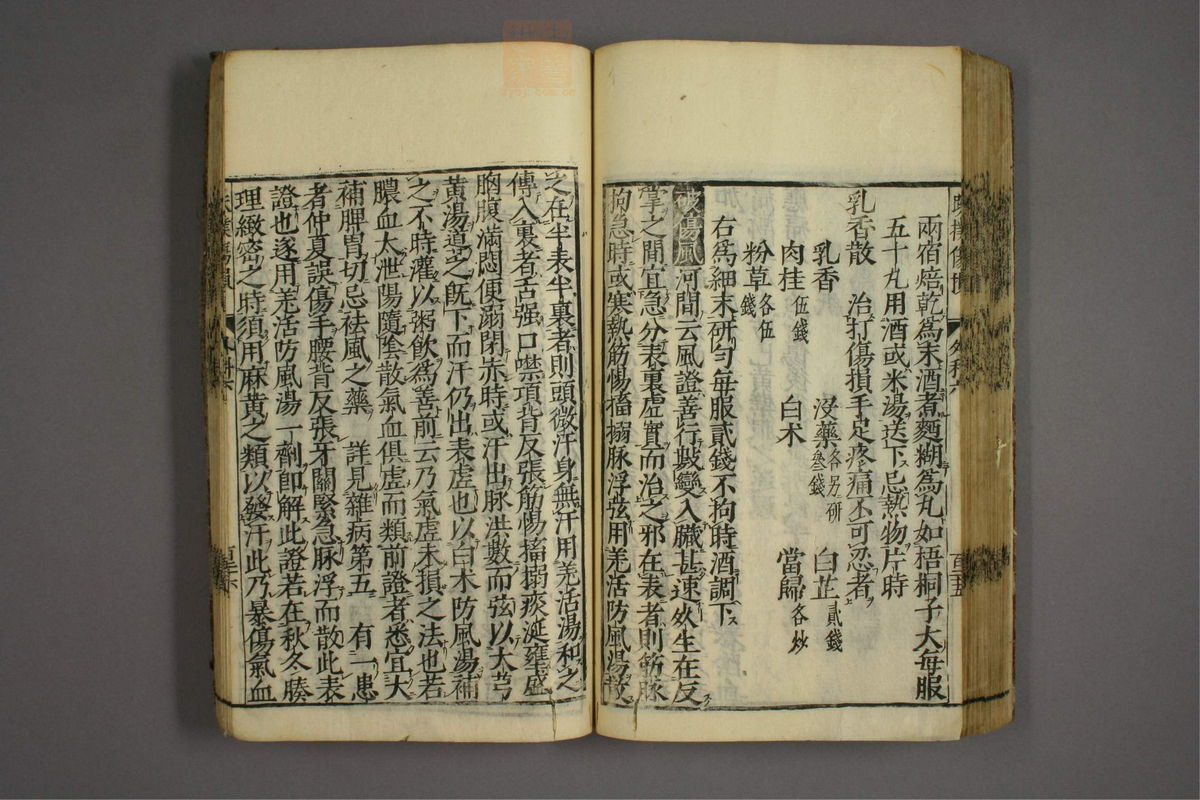 兩宿焙乾爲末酒煮麵糊爲丸如梧桐子大每服
五十丸用酒或米湯送下忌熱物片時
乳香散　治打傷損手足疼痛不可忍者
乳香　沒藥各另研叁錢　白芷貳錢
肉桂伍錢　白术　當歸各炒
粉草各伍錢
右爲細末研勻每服貳錢不拘時酒調下
破傷風河間云風證善行數變入臟甚速死生在反
掌之間宜急分表裏虛實而治之邪在表者則筋脉
拘急時或寒熱筋惕搐搦脉浮弦用羌活防風湯散
之在半表半裏者則頭微汗身無汗用羌活湯和之
傳入裏者舌强口噤項背反張筋惕搐搦痰涎壅盛
胸腹滿悶便溺閉赤時或汗出脉洪數而弦以大芎
黃湯導之旣下而汗仍出表虛也以白术防風湯補
之不時灌以粥飲爲善前云乃氣虛未損之法也若
膿血太泄陽隨陰散氣血俱虛而類前證者悉宜大
補脾胃切忌祛風之藥　詳見雜病第五　有一患
者仲夏誤傷手腰背反張牙關緊急脉浮而散此表
證也遂用羌活防風湯一劑卽解此證若在秋冬腠
理緻密之時須用麻黃之類以發汗此乃暴傷氣血